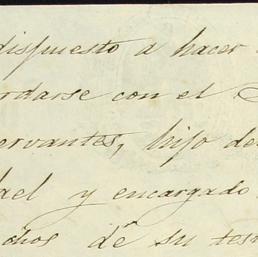 dispuesto a hacer
rdarse con el
ervantes, hijo de
ael y encargado
chos dn de su tes